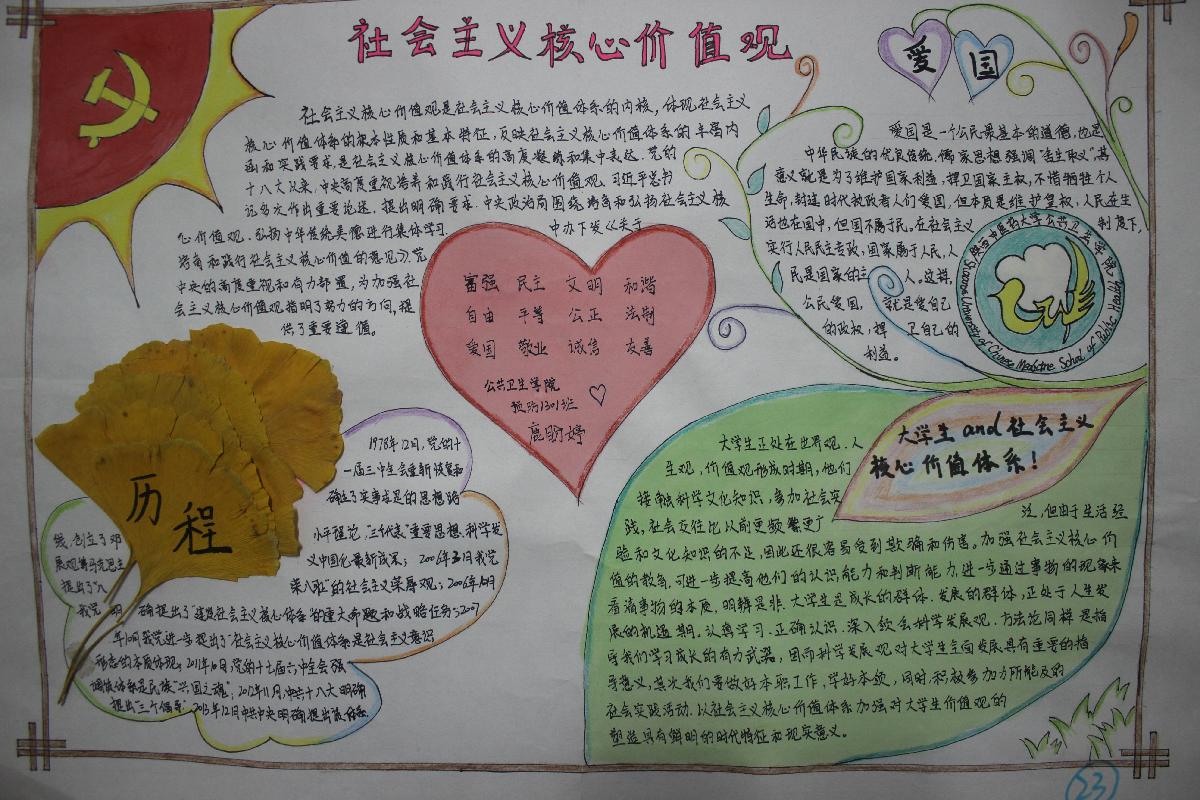 社会主义核心价值观
社会主义核心价值观是社会主义核心价值体系的内核，体现社会主义
核心价值体系的根本性质和基本特征，反映社会主义核心价值体系的丰富内
涵和实践要求，是社会主义核心价值体系的高度凝练和集中表达。党的
十八大以来，中央高度重视培养和践行社会主义核心价值观。习近平总书
记多次作出重要论述，提出明确要求。中央政治局围绕培育和弘扬社会主义核
心价值观、弘扬中华传统美德进行集体学习。 中办下发《关于
培育和践行社会主义核心价值的意见》。党
中央的高度重视和有力部署，为加强社
会主义核心价值观指明了努力的方向，提
供了重要遵循。
爱国
爱国是一个公民最基本的道德，也是
中华民族的优良传统。儒家思想强调"舍生取义"，其
意义就是为了维护国家利益，捍卫国家主权，不惜牺牲个人
生命。封建时代执政者人们爱国，但本质是维护皇权，人民在生
活也在国中，但国不属于民。在社会主义 制度下，
实行人民民主专政，国家属于人民，人
民是国家的主 人。这样，
公民爱国， 就是爱自己
的政权，捍 卫自己的
利益。
中医药大学公共卫生学院
Shaanxi University of Chinese Medicine School of Public Health
富强 民主 文明 和谐
自由 平等 公正 法制
爱国 敬业 诚信 友善
公共卫生学院
预防1301班
鹿明婷
历程
1978年12月，党的十
一届三中全会重新恢复和
确立了实事求是的思想路
线，创立了邓 小平理论，"三个代表"重要思想，科学发
展观等马克思主 义中国化最新成果；2006年3月我党
提出了"八 荣八耻"的社会主义荣辱观；2006年10月
我党 明 确提出了"建设社会主义核心体系"的重大命题和战略任务；2007
年10月我党进一步提出了"社会主义核心价值体系是社会主义意识
形态的本质体现；2011年10月党的十七届六中全会强
调该体系是民族"兴国之魂"；2012年11月，中共十八大明确
提出"三个倡导"；2013年12月中共中央明确提出
大学生and社会主义
核心价值体系！
大学生正处在世界观、人
生观，价值观形成时期，他们
接触科学文化知识，参加社会实
践，社会交往比以前更频繁更广 泛，但由于生活经
验和文化知识的不足，因此还很容易受到欺骗和伤害。加强社会主义核心价
值的教育，可进一步提高他们的认识能力和判断能力，进一步通过事物的现象来
看清事物的本质，明辨是非。大学生是成长的群体，发展的群体，正处于人生发
展的机遇期。认真学习、正确认识、深入领会科学发展观，方法论同样是指
导我们学习成长的有力武器，因而科学发展观对大学生全面发展具有重要的指
导意义，其次我们要做好本职工作，学好本领，同时，积极参加力所能及的
社会实践活动，以社会主义核心价值体系加强对大学生价值观的
塑造具有鲜明的时代特征和现实意义。
23